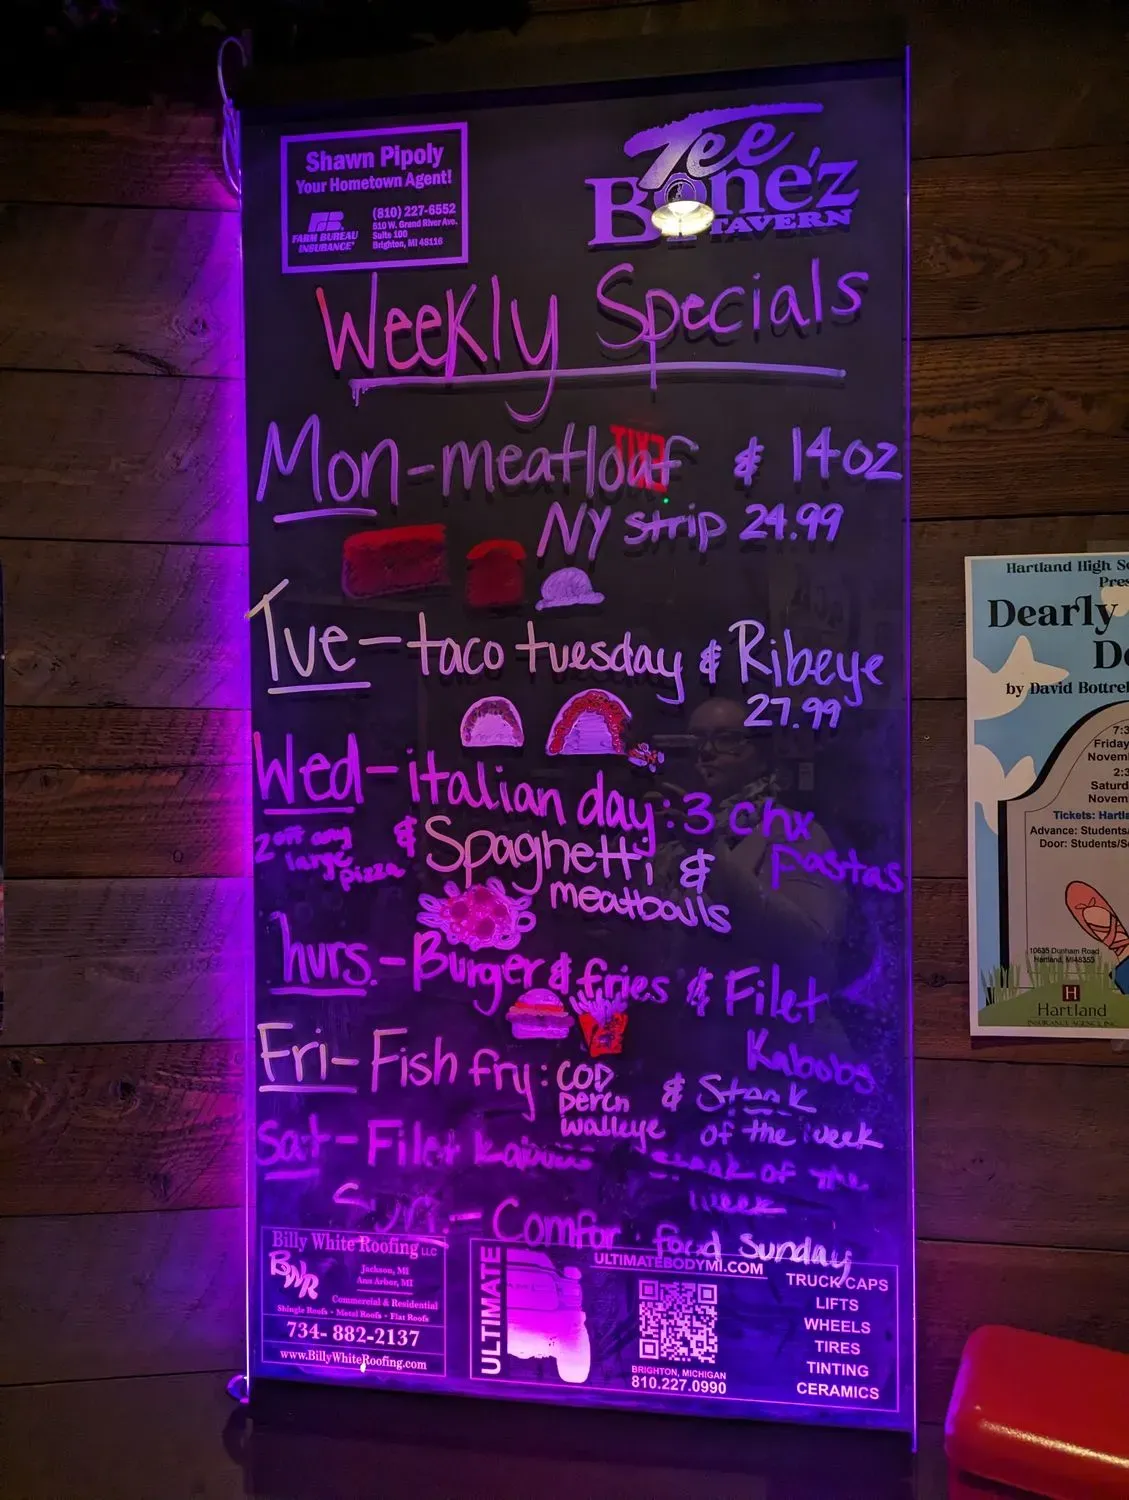 Shawn Pipoly
Your Hometown Agent!
FARM BUREAU
INSURANCE
(810) 227-6552
810 W. Grand River Ave.
Suite 100
Brighton, MI 48116
Tee
Bone'z
TAVERN
Weekly Specials
Mon-meatloaf & 14oz
NY Strip 24.99
EXIT
Tue-taco tuesday & Ribeye
27.99
Wed-italian day: 3 chx
pastas
& Spaghetti &
meatballs
2 off any
large
pizza
hurs.-Burger & fries & Filet
Kabobs
Fri-Fish fry: COD
perch
walleye
& Steak
of the week
Sat-Filet
of the
week
Sun.-Comfor food Sunday
Billy White Roofing LLC
BWR
Jackson, MI
Ann Arbor, MI
Commercial & Residential
Shingle Roofs • Metal Roofs • Flat Roofs
734- 882-2137
www.BillyWhiteRoofing.com
ULTIMATE
ULTIMATEBODYMI.COM
BRIGHTON, MICHIGAN
810.227.0990
TRUCK CAPS
LIFTS
WHEELS
TIRES
TINTING
CERAMICS
Hartland High S
Pres
Dearly
D
by David Bottrel
7:3
Friday
Novem
2:3
Saturd
Novem
Tickets: Hartla
Advance: Students/
Door: Students/S
10635 Dunham Road
Hartland, MI48353
H
Hartland
INSURANCE AGENCY, INC.